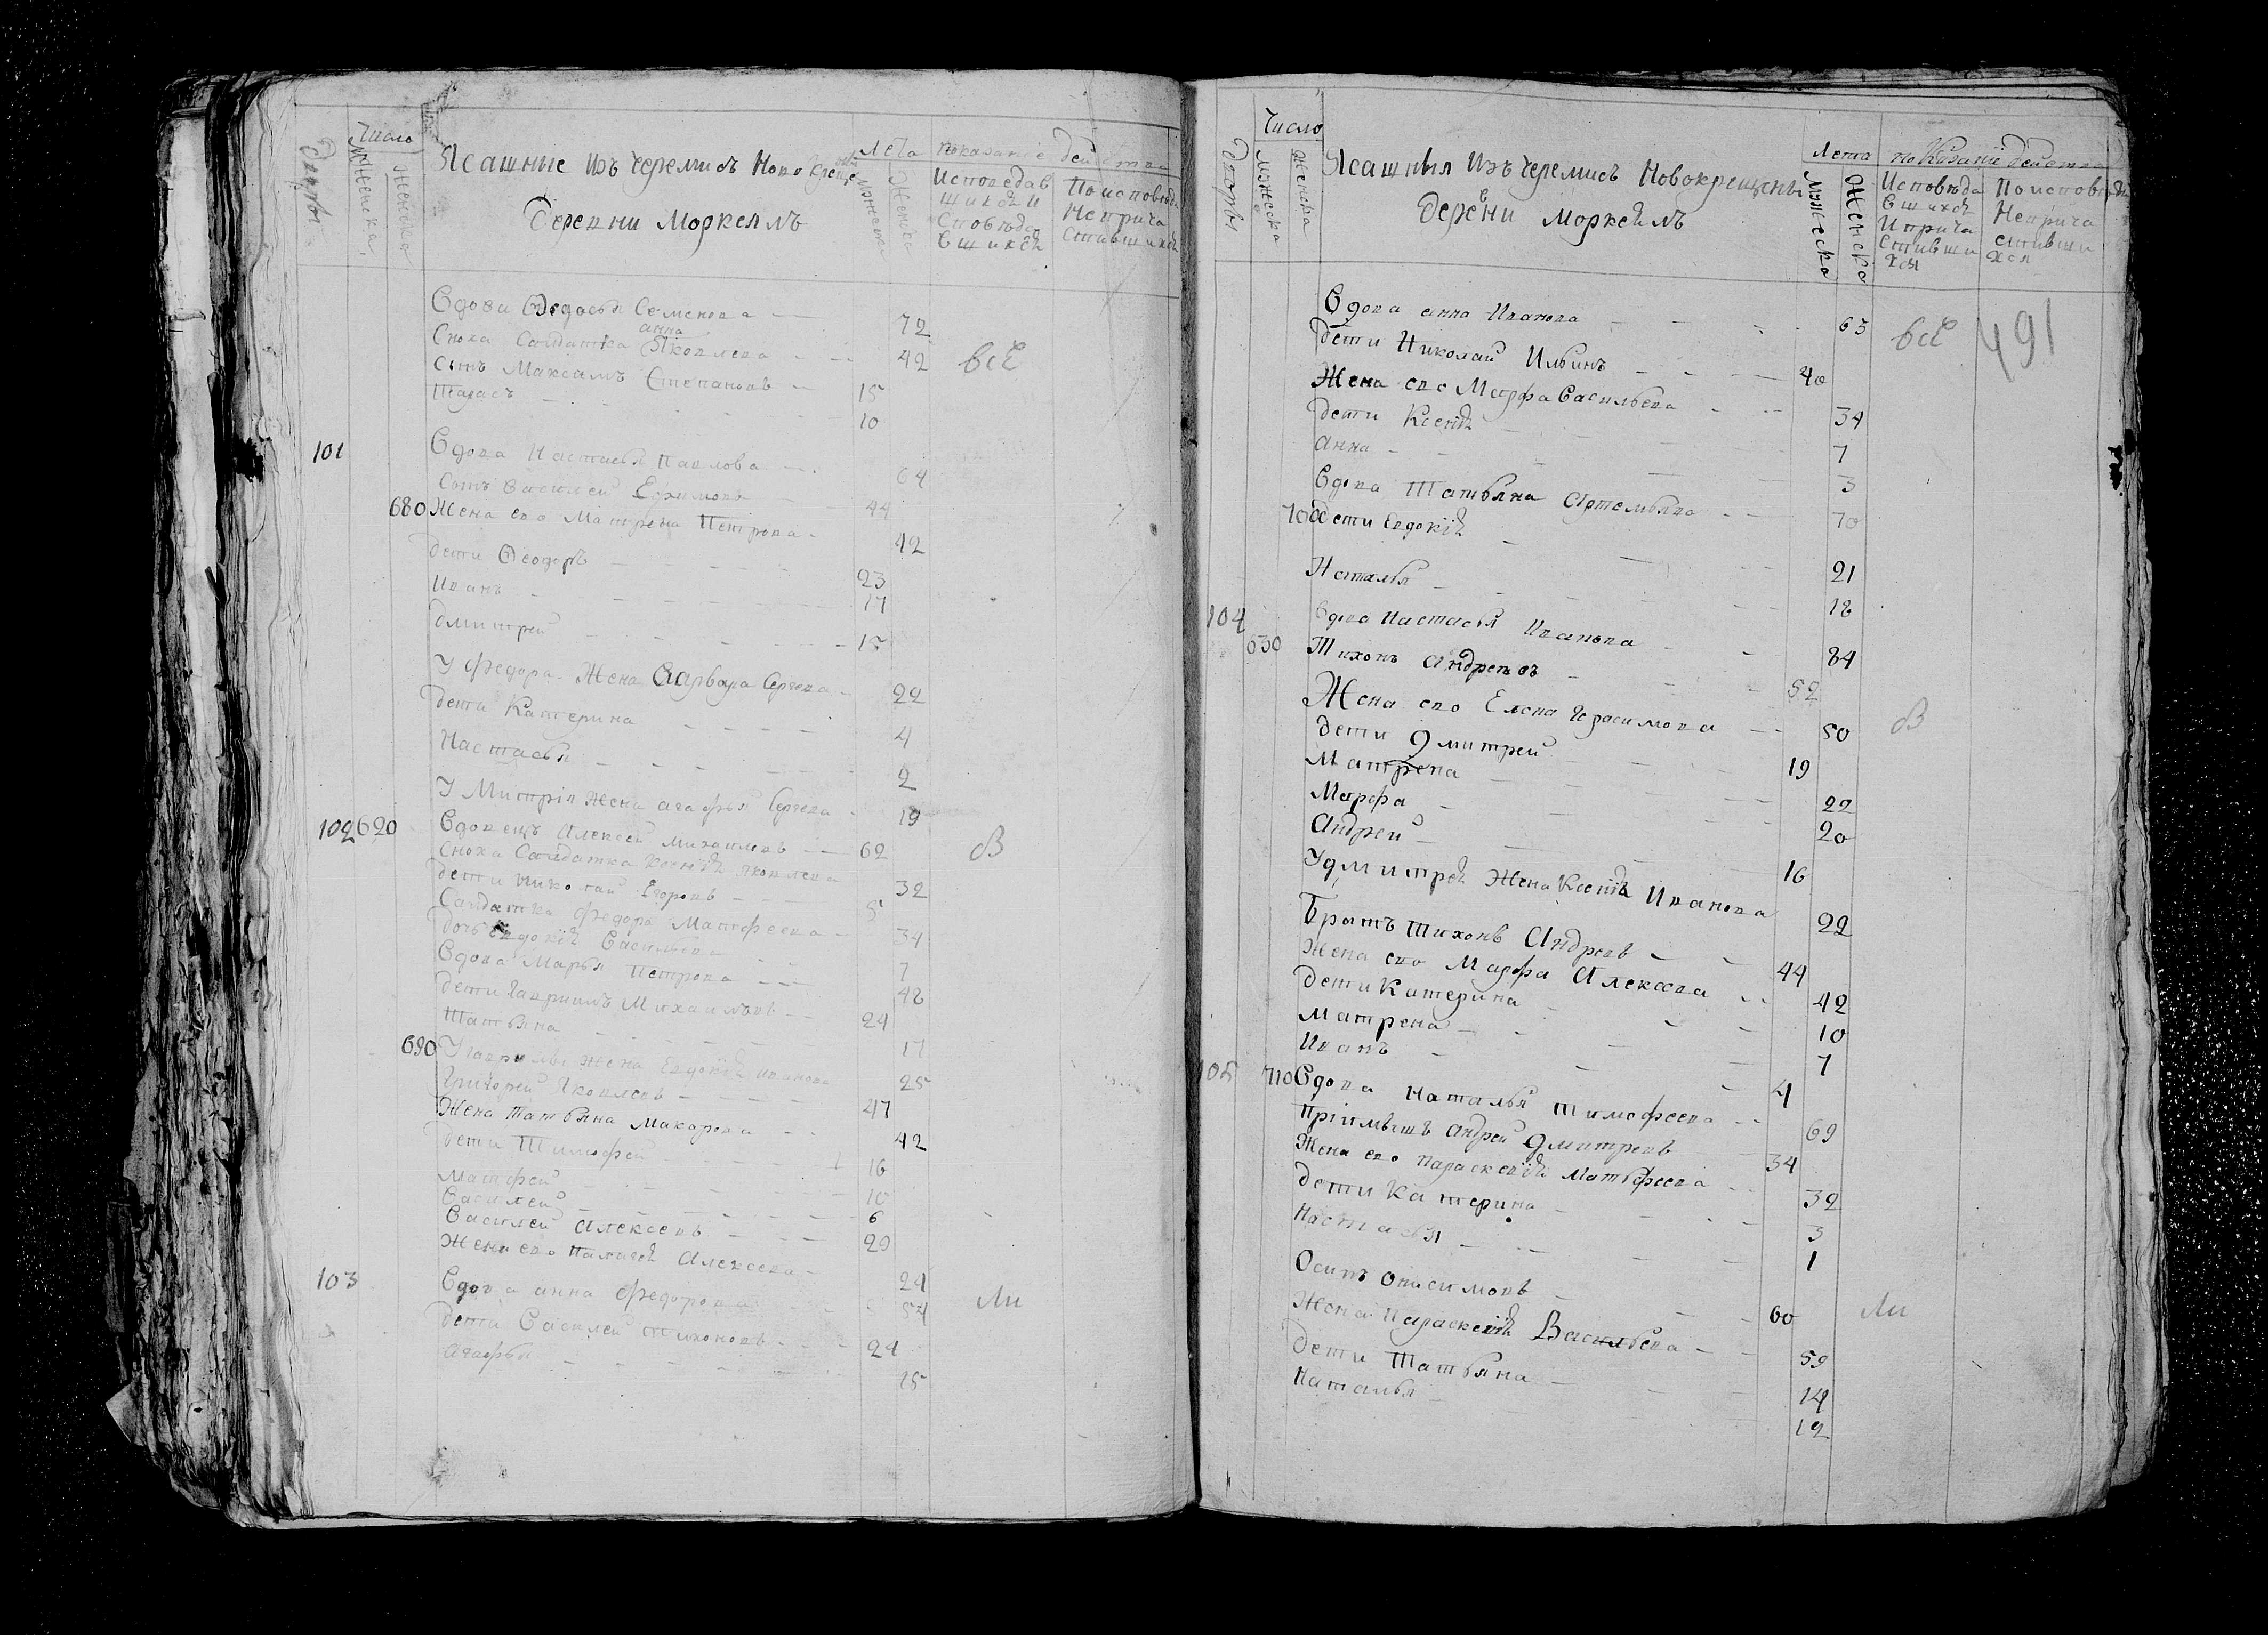 Число
Дворы
Мужеска
Женска
Ясашние изъ черемисъ Новокреще
Деревни Моркеялъ
Лета
Мужеска
Женска
показание действа
Исповедав
шихся и
Сповѣда
вшихся
По исповѣди
Неприча
стившихся
Вдова Ѳедосья Семенова 72
Сноха Салдатка анна Яковлева 42 всѣ
Сынъ Максимъ Степановъ 15
Тарасъ 10
101 Вдова Настасья Павлова 64
Сынъ Василей Ефимовъ 44
680 Жена ево Матрена Петрова 42
Дети Ѳеодоръ 23
Иванъ 17
Дмитрей 15
У Федора Жена Варвара Сергеева 22
Дети Катерина 4
Настасья 2
У Митрія Жена агафья Сергеева 19
102 620 Вдовецъ Алексей Михаиловъ 62 В
Сноха Салдатка Ксенѣя Яковлева 32
Дети Николай Егоровъ 5
Салдатка Федора Матфеева 34
Дочь Евдокія Васильева 7
Вдова Марья Петрова 48
Дети Гавриилъ Михаиловъ 24
Татьяна 17
690 У Гаврилы жена Евдокія Иванова 25
Григорей Яковлевъ 47
Жена Татьяна Макарова 42
Дети Тимофей 16
Матфей 10
Василей 6
Василей Алексеевъ 29
Жена ево Палагея Алексеева 24
103 Вдова анна Федорова 54 Ли
Дети Василей Тихоновъ 24
Агафья 15
Число
Дворы
Мужеска
Женска
Ясашныя изъ черемисъ Новокрещены
Деревни Моркеялъ
Лета
Мужеска
Женска
показание действа
Исповѣда
вшихся
И прича
стивши
хся
По исповѣди
Неприча
стивши
хся
491
Вдова анна Иванова 65 всѣ
Дети Николай Ильинъ 40
Жена ево Марфа Васильева 34
Дети Ксения 7
Анна 3
Вдова Татьяна Артемьева 70
700 Дети Евдокія 21
Наталья 18
104 Вдова Настасья Иванова 84
630 Тихонъ Андреевъ 52
Жена ево Елена Герасимова 50 В
Дети Дмитрей 19
Матрена 22
Марфа 20
Андрей 16
У Дмитрея Жена Ксения Иванова 22
Братъ Тихонъ Андреевъ 44
Жена ево Марфа Алексеева 42
Дети Катерина 10
Матрена 7
Иванъ 4
105 710 Вдова Наталья Тимофеева 69
Пріимышъ Андрей Дмитревъ 34
Жена ево Параскевія Матьфеева 32
Дети Катерина 3
Настасья 1
Осипъ Онисимовъ 60 Ли
Жена Параскевія Васильева 59
Дети Татьяна 14
Наталья 12